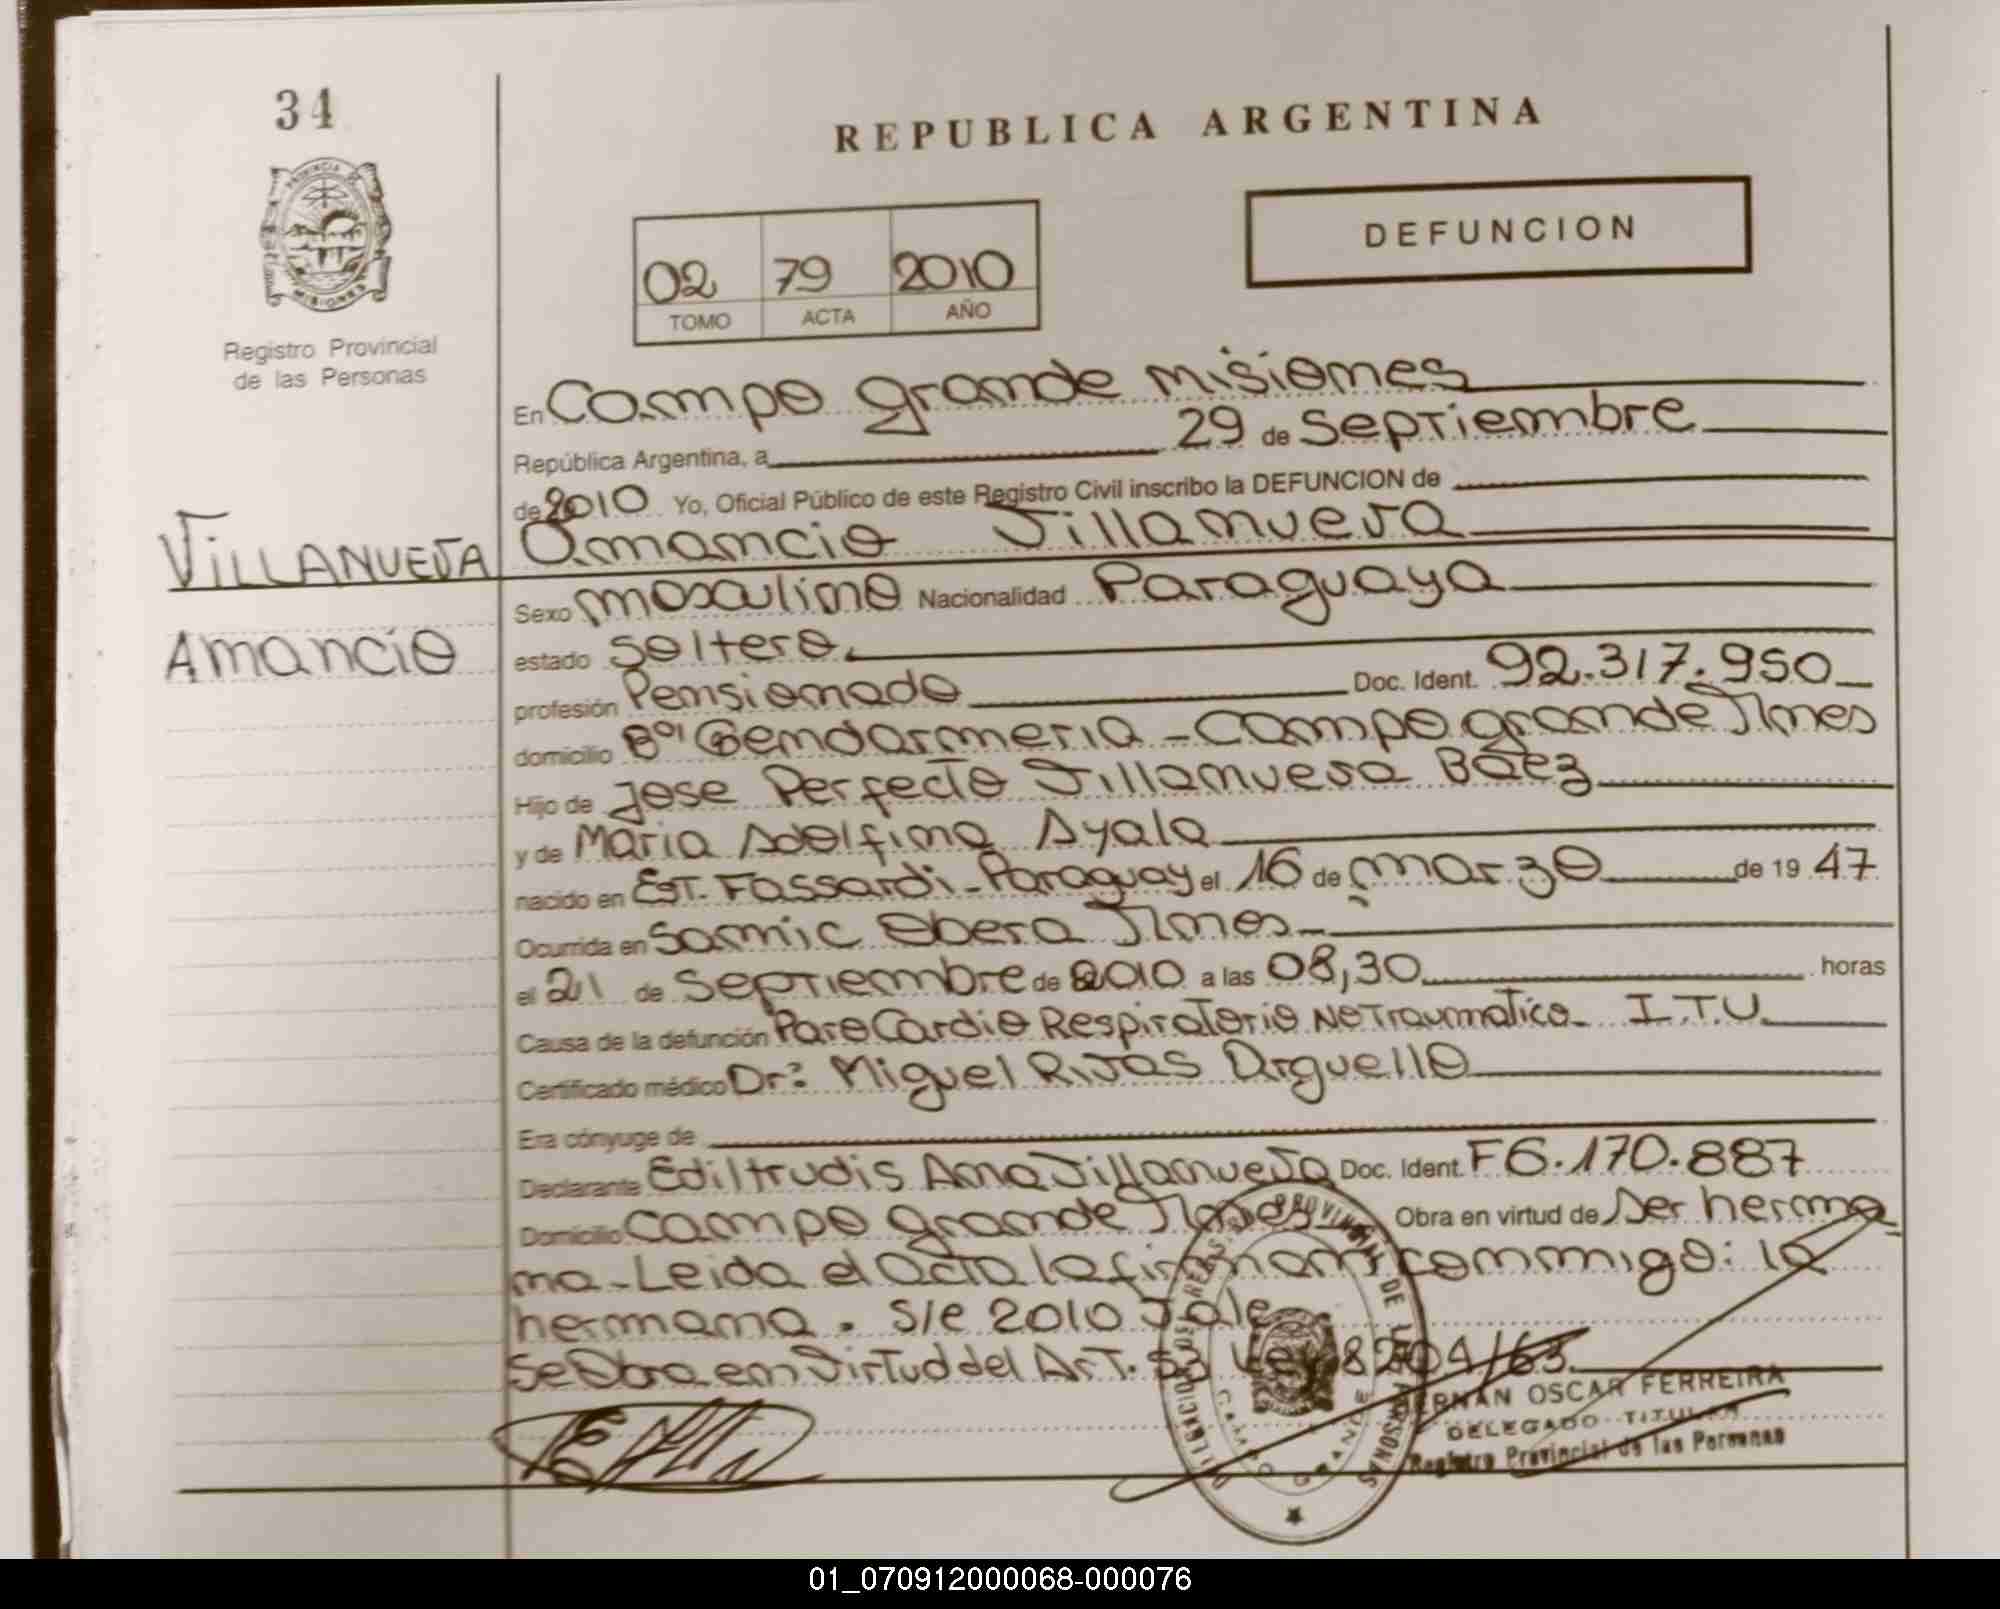 34
REPUBLICA ARGENTINA
DEFUNCION
02 79 2010
TOMO ACTA AÑO
PROVINCIA DE
MISIONES
Registro Provincial
de las Personas
En Campo grande Misiones
República Argentina, a 29 de Septiembre
de 2010 Yo, Oficial Público de este Registro Civil inscribo la DEFUNCION de
VILLANUEVA Amancio Villanueva
Sexo masculino Nacionalidad Paraguaya
AMANCIO
estado soltero.
profesión Pensionado Doc. Ident. 92.317.950
domicilio Bº Gendarmeria - Campo grande Mnes
Hijo de Jose Perfecto Villanueva Báez
y de Maria Adolfina Ayala
nacido en Est. Fassardi - Paraguay el 16 de marzo de 1947
Ocurrida en Samic Obera Mnes-
el 21 de Septiembre de 2010 a las 08,30 horas
Causa de la defunción Paro Cardio Respiratorio No Traumatico - I.T.U.
Certificado médico Dr: Miguel Rivas Arguello
Era cónyuge de
Declarante Ediltrudis Ana Villanueva Doc. Ident. F6.170.887
Domicilio Campo grande Mnes Obra en virtud de ser herma
na - Leida el Acta la firman conmigo: la
hermana. S/e 2010 Vale
Se Obra en Virtud del Art. 53 Ley 8204/63.
DELEGACION DEL REGISTRO PROVINCIAL DE LAS PERSONAS
CAMPO GRANDE
HERNAN OSCAR FERREIRA
DELEGADO TITULAR
Registro Provincial de las Personas
01_070912000068-000076